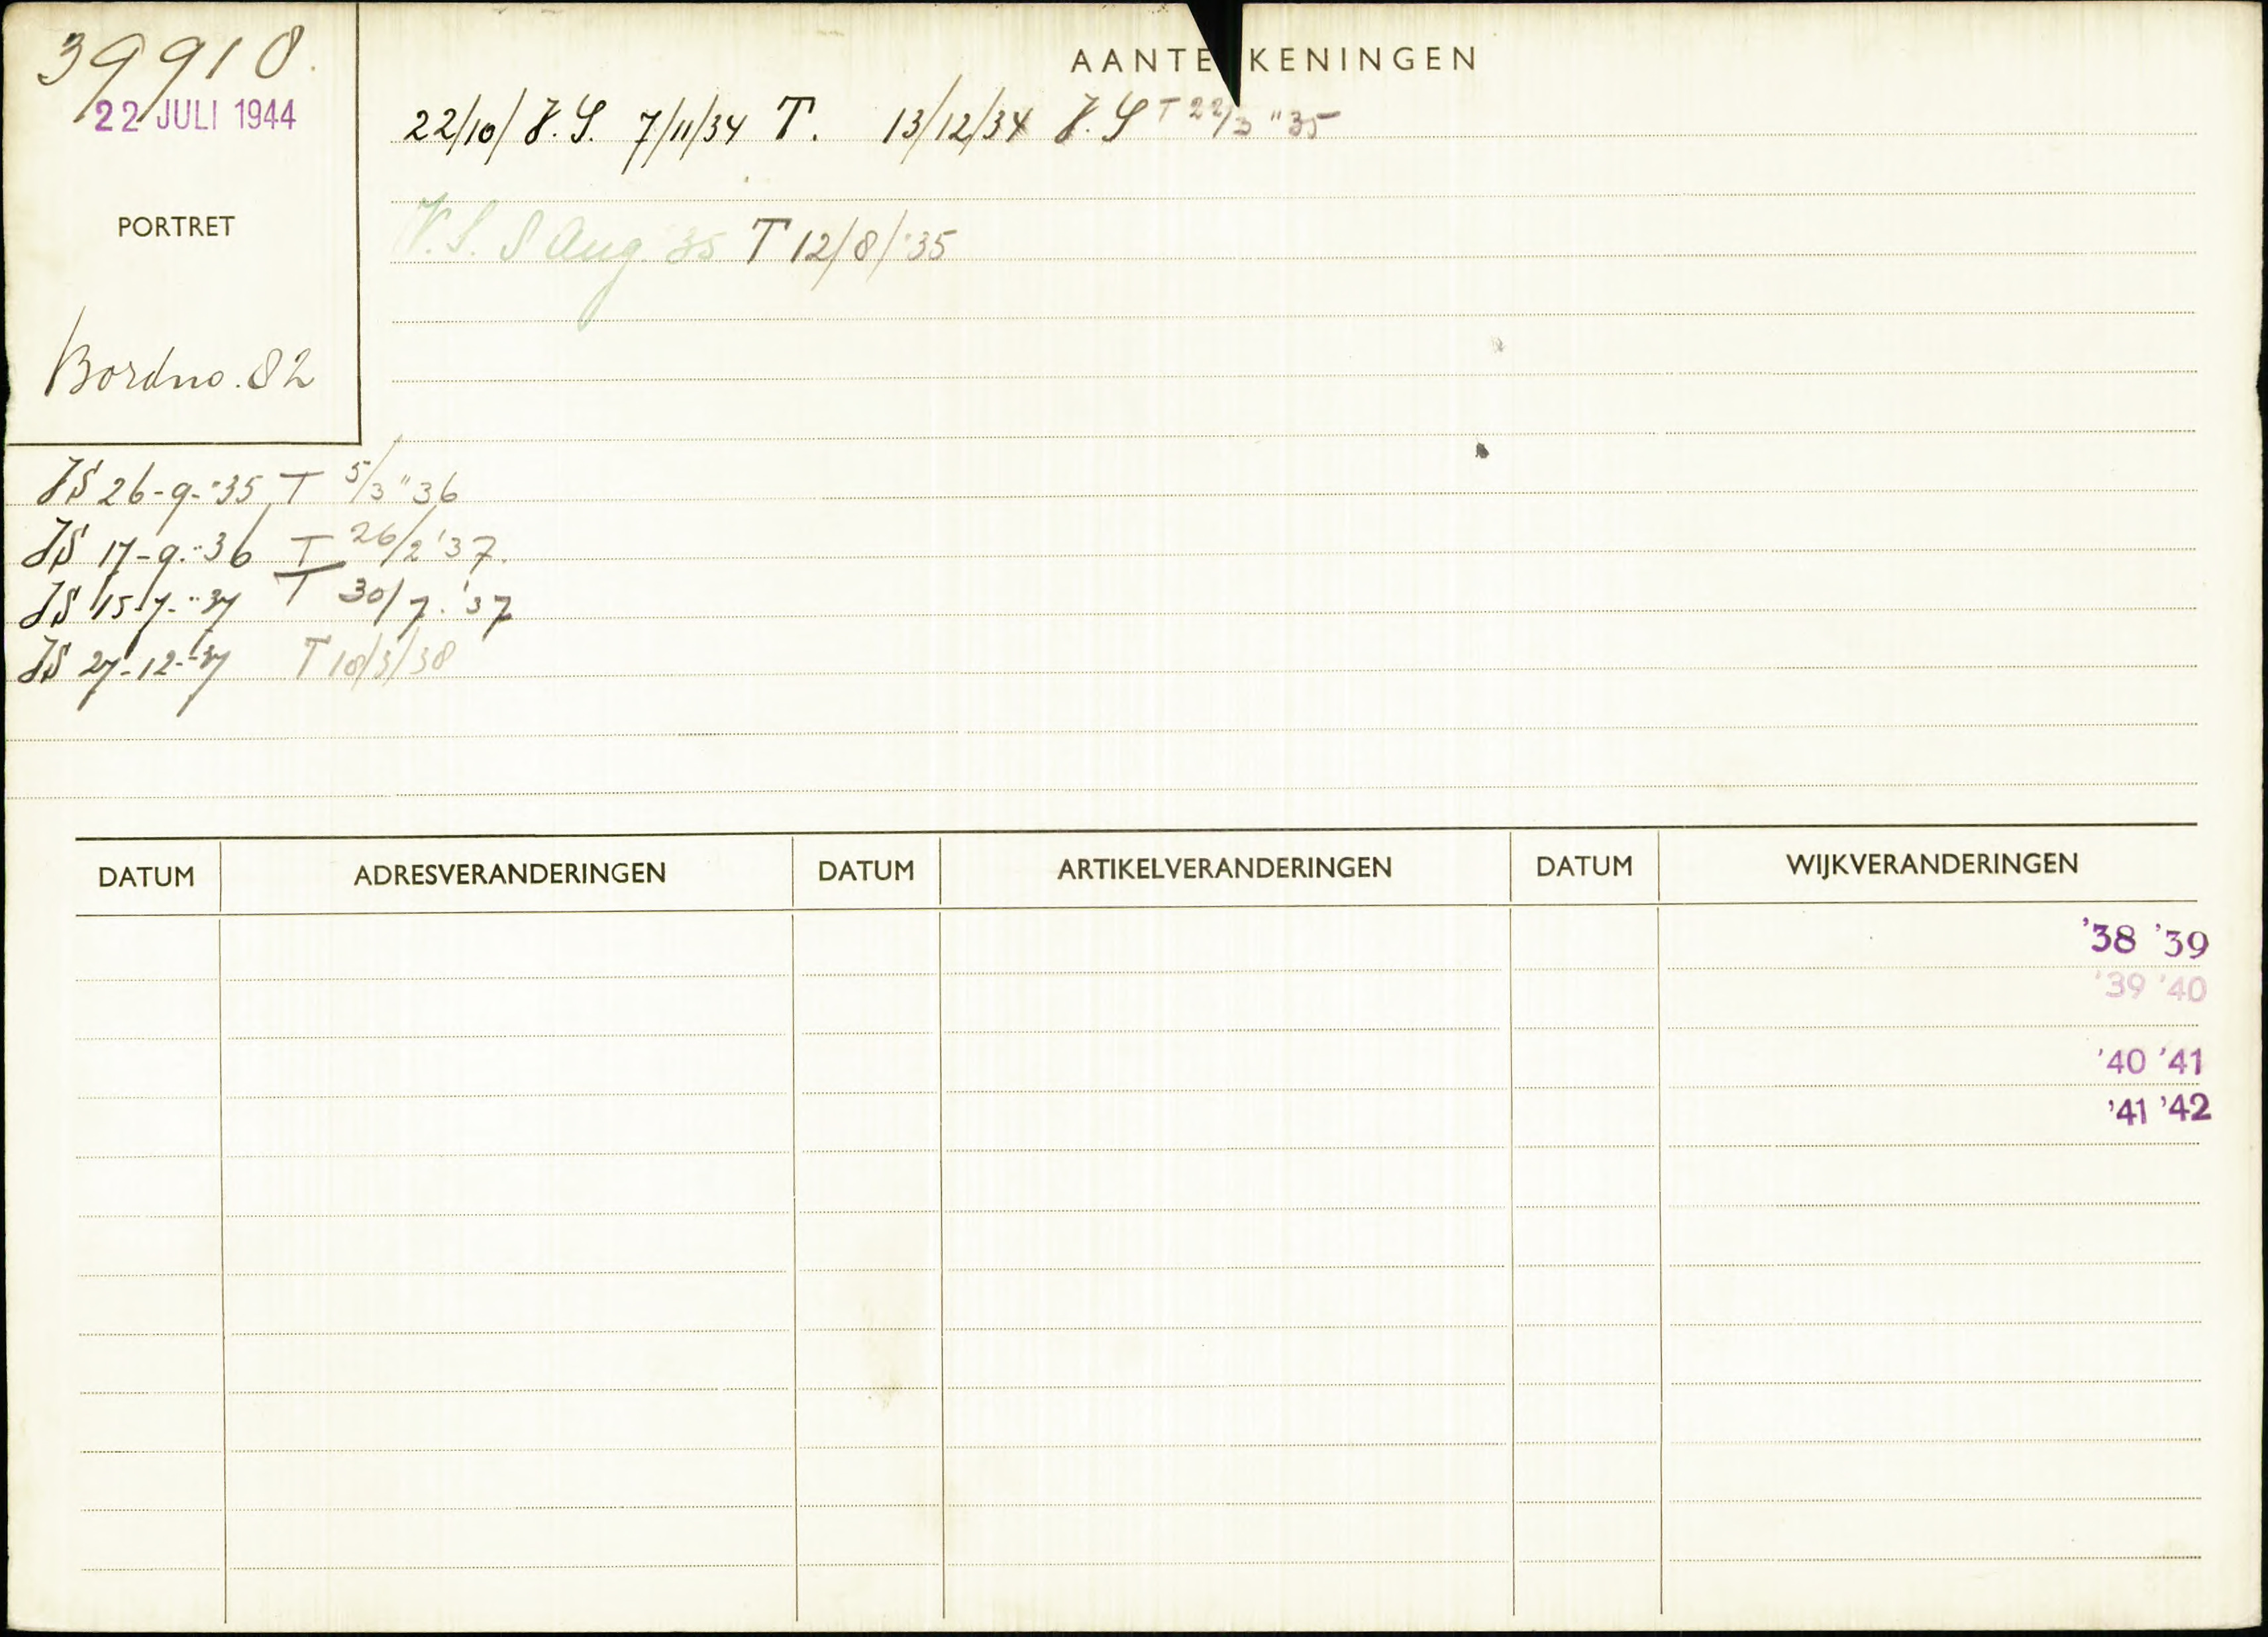 39910.
22 JULI 1944
PORTRET
Bordno. 82
AANTEKENINGEN
22/10/ V.S. 7/11/34 T. 13/12/34 V.S T 22/3 "35
V.S. 8 Aug. 35 T 12/8/'35
VS 26-9-"35 T 5/3 "36
VS 17-9-"36 T 26/2 '37.
VS 15-7-"37 T 30/7. '37
VS 27-12-"37 T 10/3/38
DATUM ADRESVERANDERINGEN DATUM ARTIKELVERANDERINGEN DATUM WIJKVERANDERINGEN
'38 '39
'39 '40
'40 '41
'41 '42